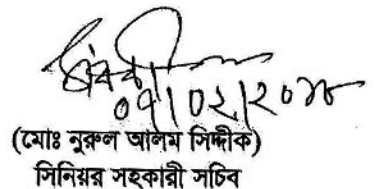 ০৭/০২/২০১৮
(মোঃ নুরুল আলম সিদ্দীক)
সিনিয়র সহকারী সচিব